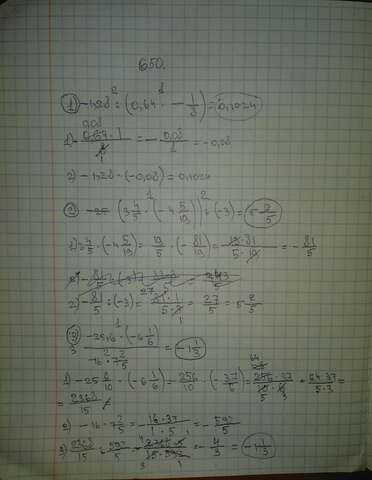 650.
1) -1,28 · (0,64 · - 1/8) = 0,1024
1) - 0,64 · 1 / 8 = - 0,08 / 1 = -0,08
2) -1,28 · (-0,08) = 0,1024
2) (3 4/5 · (-4 5/19)) : (-3) = 5 2/5
1) 3 4/5 · (-4 5/19) = 19/5 · (- 81/19) = 19 · 81 / 5 · 19 = - 81/5
2) - 81/5 : (-3) = 81 · 1 / 5 · 3 = 27/5 = 5 2/5
3) -25,6 · (-6 1/6) / -16 · 7 2/5 = -1 1/3
1) -25 6/10 · (-6 1/6) = 256/10 · (- 37/6) = 256 · 37 / 10 · 6 = 64 · 37 / 5 · 3 =
= 2368/15
2) -16 · 7 2/5 = - 16 · 37 / 1 · 5 = - 592/5
3) 2368/15 : 592/5 = 2368 · 5 / 15 · 592 = - 4/3 = -1 1/3